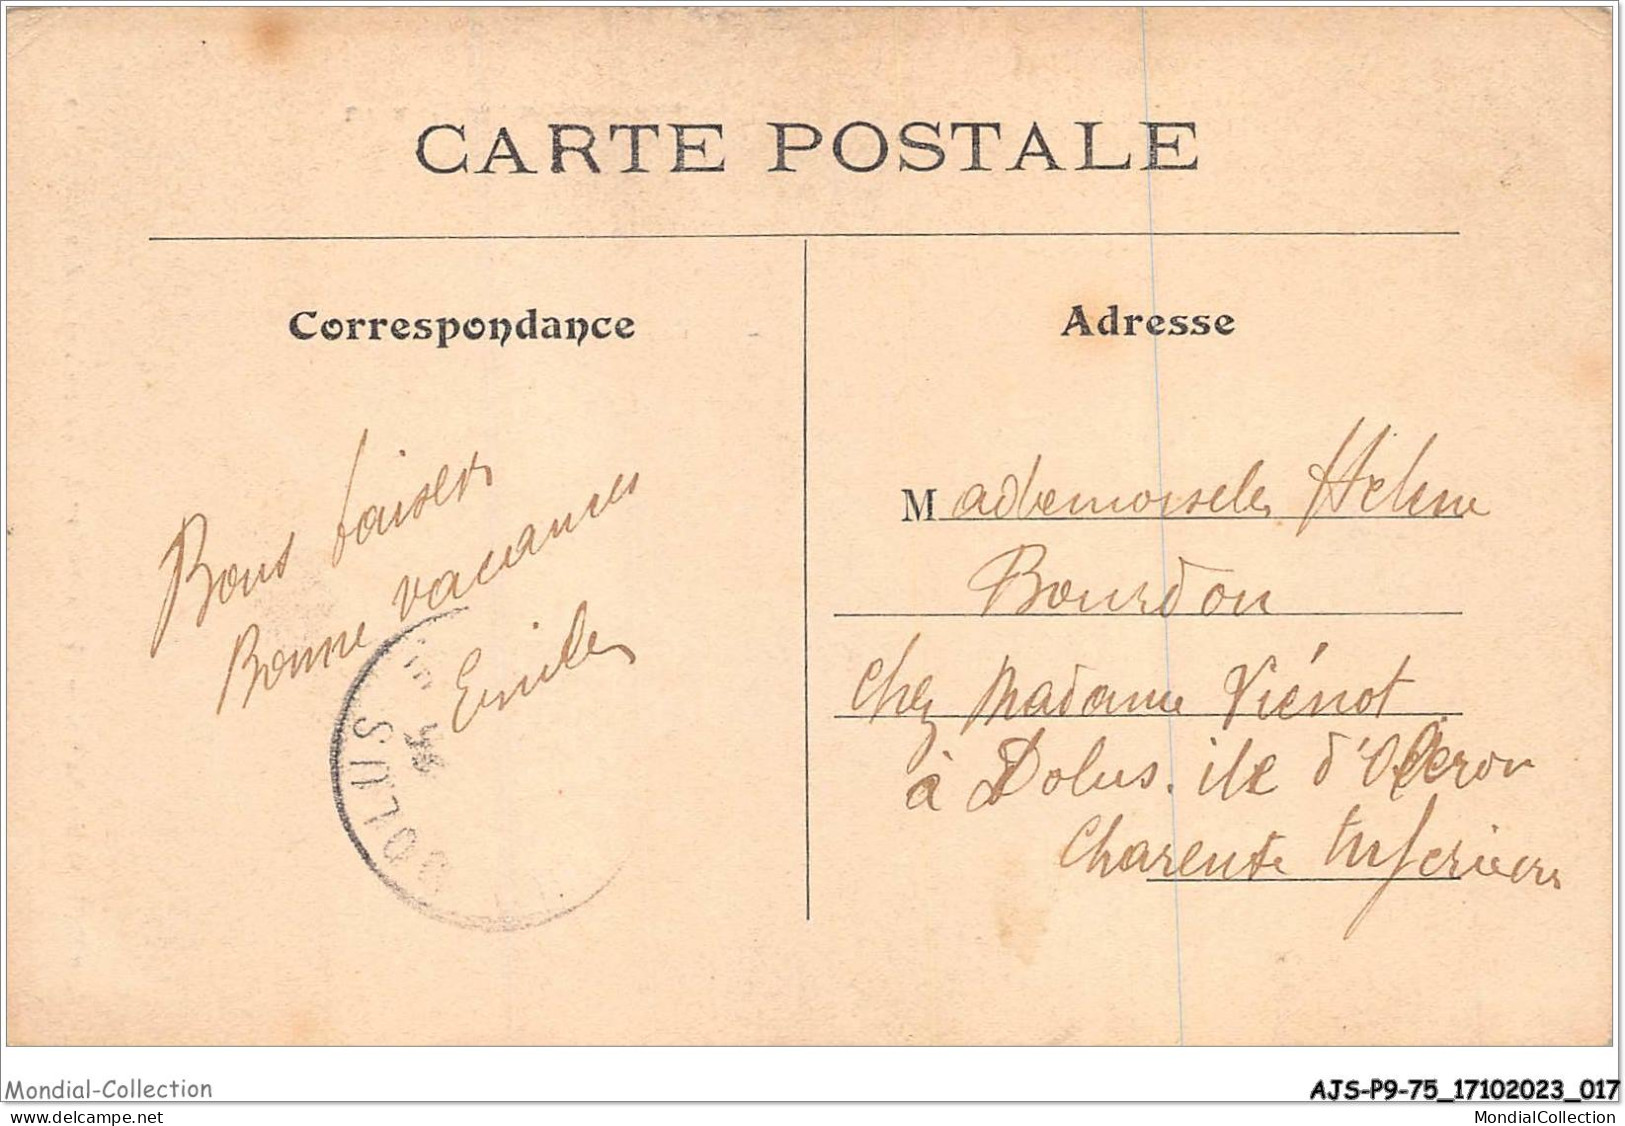 CARTE POSTALE
Correspondance
Adresse
Bons baisers
Bonne vacances
Emile
Mademoiselle Hélène
Bourdon
chez Madame Viénot
à Dolus. ile d'Oleron
Charente Inferieure
DOLUS
Mondial-Collection
AJS-P9-75_17102023_017
www.delcampe.net
MondialCollection